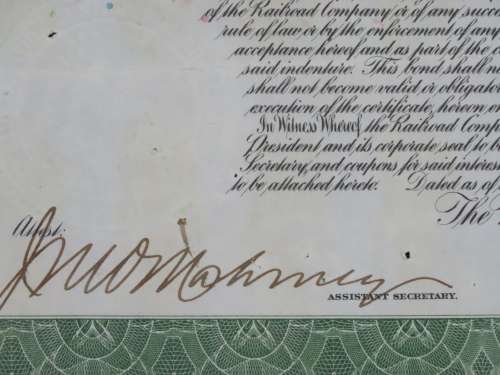 of the Railroad Company or of any succ
rule of law or by the enforcement of any
acceptance hereof and as part of the c
said indenture. This bond shall no
shall not become valid or obligator
execution of the certificate, hereon e
In Witness Whereof, the Railroad Comp
President and its corporate seal to be
Secretary, and coupons for said interes
to be attached hereto. Dated as of
The
Attest:
ASSISTANT SECRETARY.